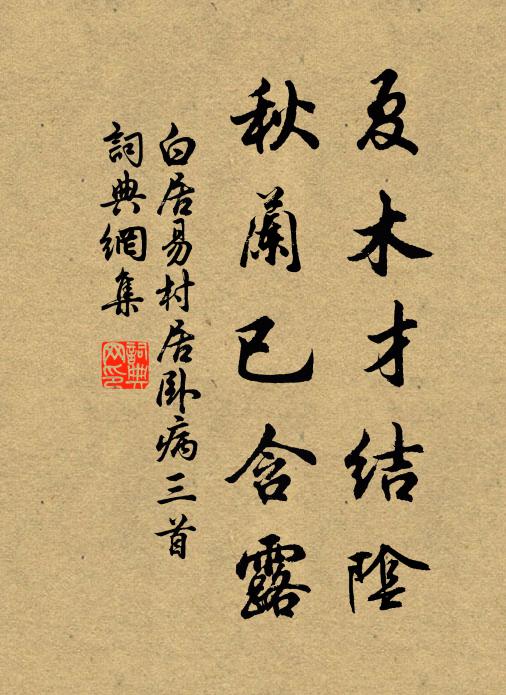 夏木才結陰
秋蘭已含露
白居易村居臥病三首
詞典網集
詞典網印